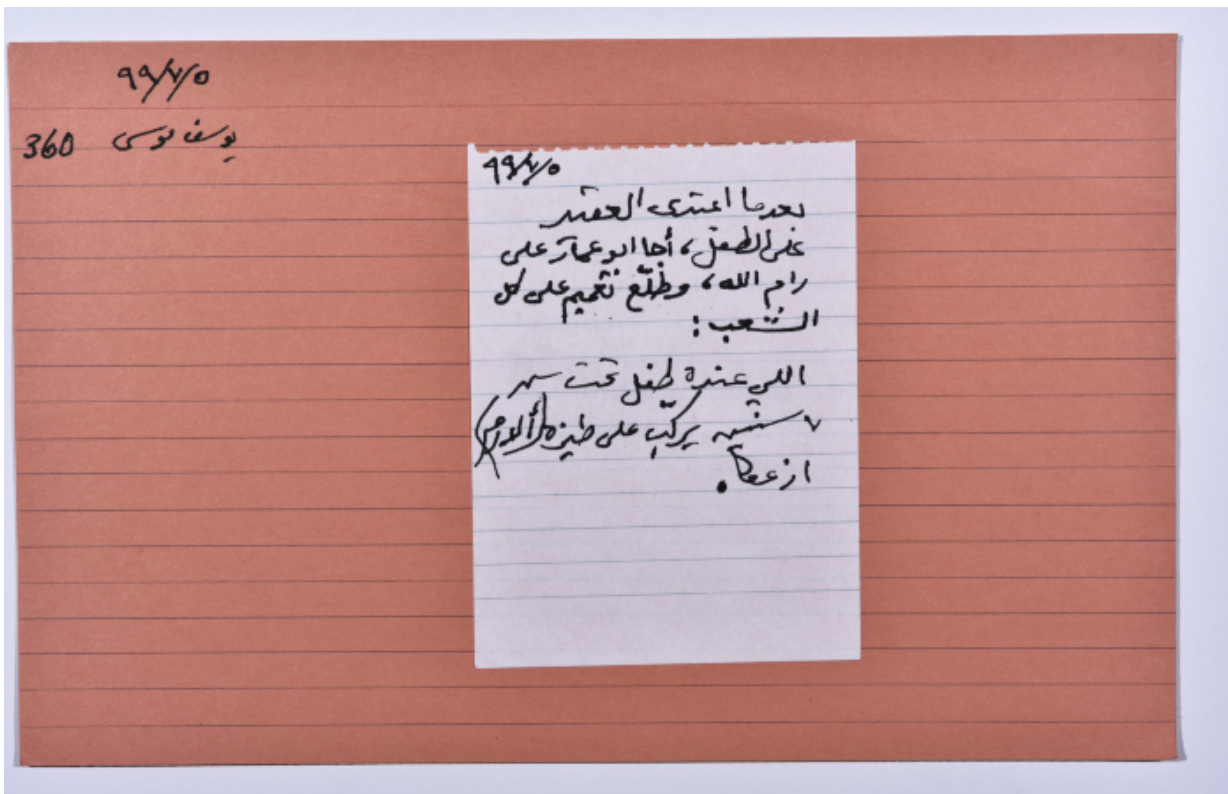 ٩٩/٧/٥
يوسف موسى 360
٩٩/٧/٥
بعدما اعتدى العقيد
على الطفل، أجا ابو عمار على
رام الله، وطلّع تعميم على كل
الشعب:
اللي عنده طفل تحت سن
٧ سنين يركّب على طيزه (ألارم)
از عقا.